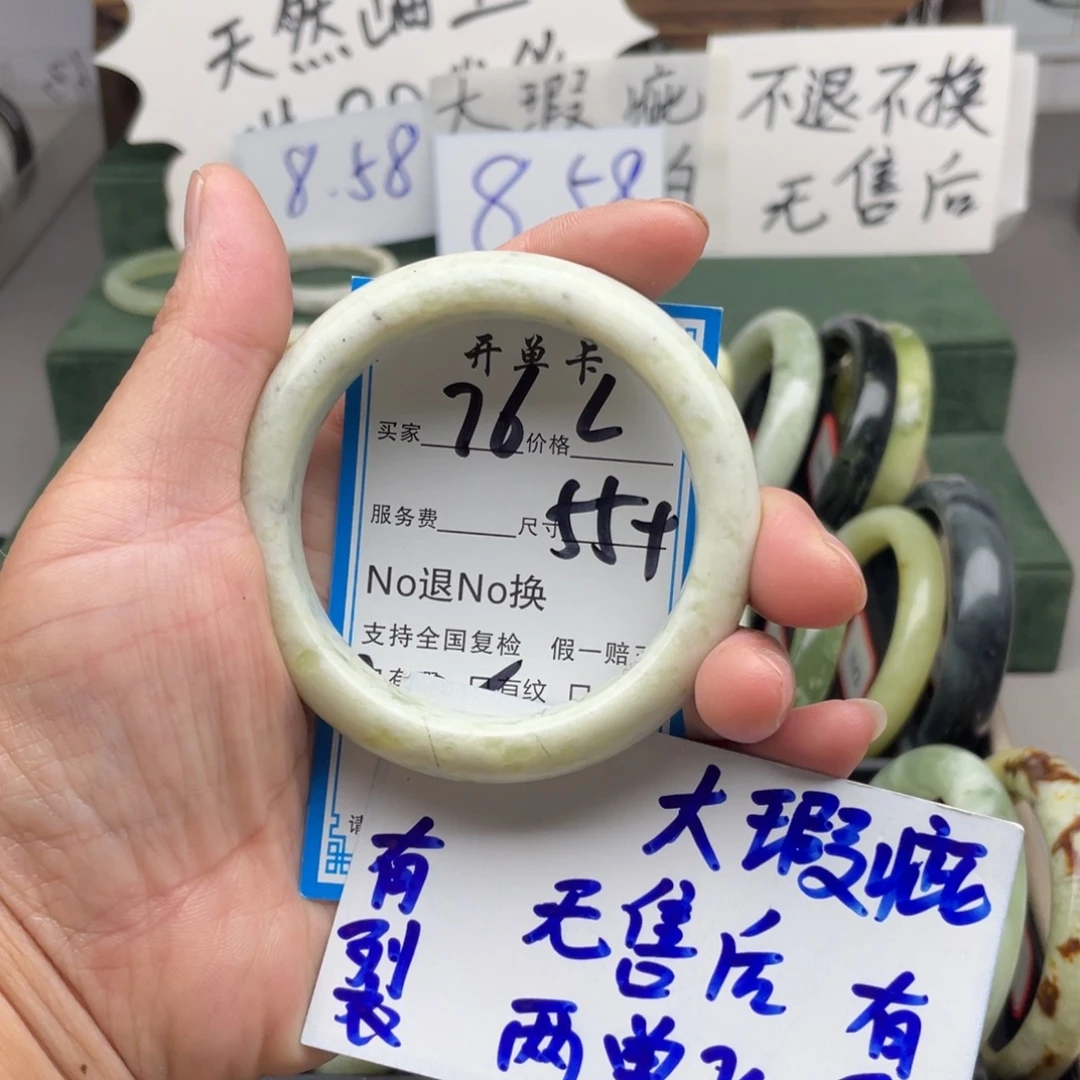 天然岫玉
8.58
大瑕疵
8.58
不退不换
无售后
开单卡
买家 76 价格 L
服务费 尺寸 55+
No退No换
支持全国复检 假一赔
有纹
请
大瑕疵
有裂
无售后
两单
有